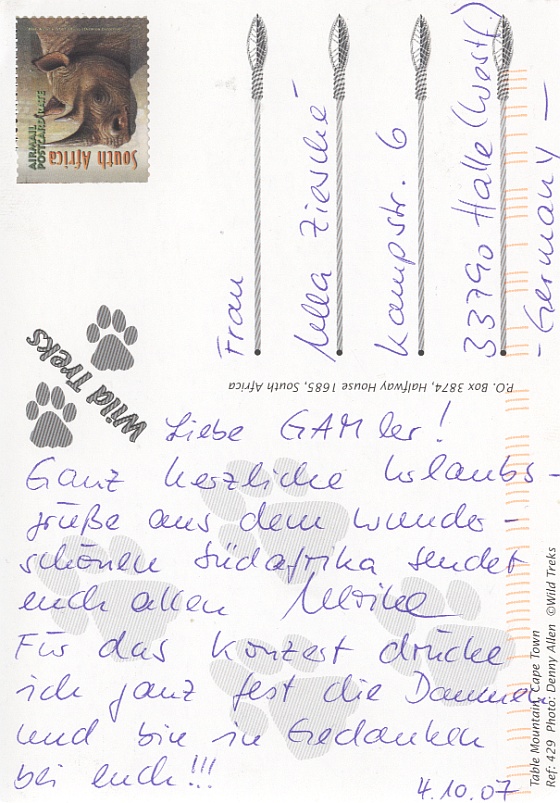 AIRMAIL
POSTCARD RATE
South Africa
Frau
Ulla Ziesché
Kampstr. 6
33790 Halle (Westf.)
- Germany -
Wild Treks
P.O. Box 3874, Halfway House 1685, South Africa
Liebe GAMler!
Ganz herzliche Urlaubs-
grüße aus dem wunder-
schönen Südafrika sendet
euch allen Ulrike
Für das Konzert drücke
ich ganz fest die Daumen
und bin in Gedanken
bei euch!!!
4.10.07
Table Mountain, Cape Town
Ref: 429 Photo: Denny Allen ©Wild Treks